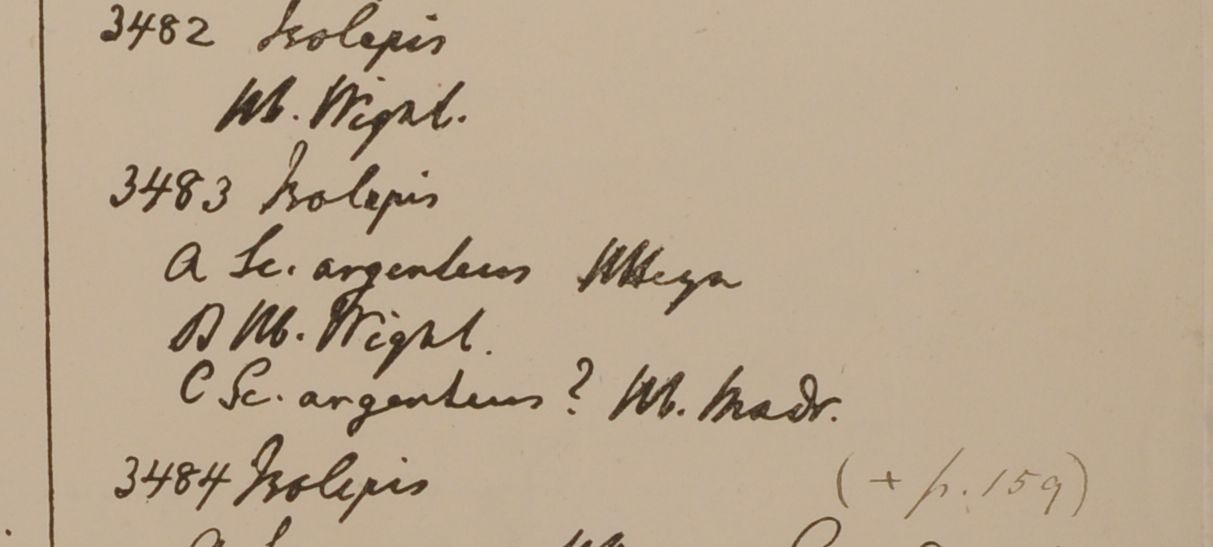 3482 Isolepis
Hb. Wight.
3483 Isolepis
a Sc. argenteus HHeyn
B Hb. Wight.
C Sc. argenteus? Hb. Madr.
3484 Isolepis (+ p. 159)